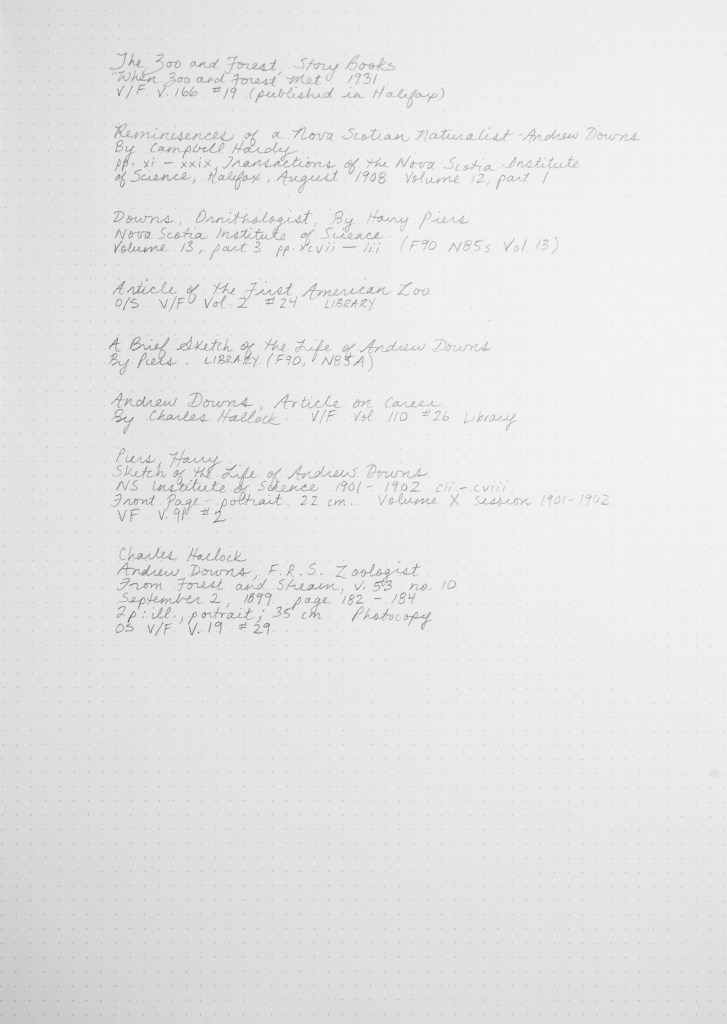 The Zoo and Forest, Story Books
"When Zoo and Forest Met" 1931
V/F V. 166 #19 (published in Halifax)
Reminisences of a Nova Scotian Naturalist - Andrew Downs
By Campbell Hardy
pp. xi - xxix, Transactions of the Nova Scotia Institute
of Science, Halifax, August 1908 Volume 12, part 1
Downs, Ornithologist, By Harry Piers
Nova Scotia Institute of Science.
Volume 13, part 3 pp. xcvii - iii (F90 N85s Vol 13)
Article of the First American Zoo
O/S V/F Vol. 2 #24 LIBRARY
A Brief Sketch of the Life of Andrew Downs
By Piers. LIBRARY (F90, N85A)
Andrew Downs, Article on Career
By Charles Hallock. V/F Vol. 110 #26 Library
Piers, Harry
Sketch of the Life of Andrew Downs
NS Institute of Science 1901 - 1902 cii - cviii.
Front Page - portrait. 22 cm. Volume X session 1901-1902
VF V. 91 #2
Charles Hallock
Andrew Downs, F.R.S. Zoologist
From Forest and Stream, V. 53 no. 10
September 2, 1899 page 182 - 184
2p: ill., portrait; 35 cm Photocopy
OS V/F V. 19 #29